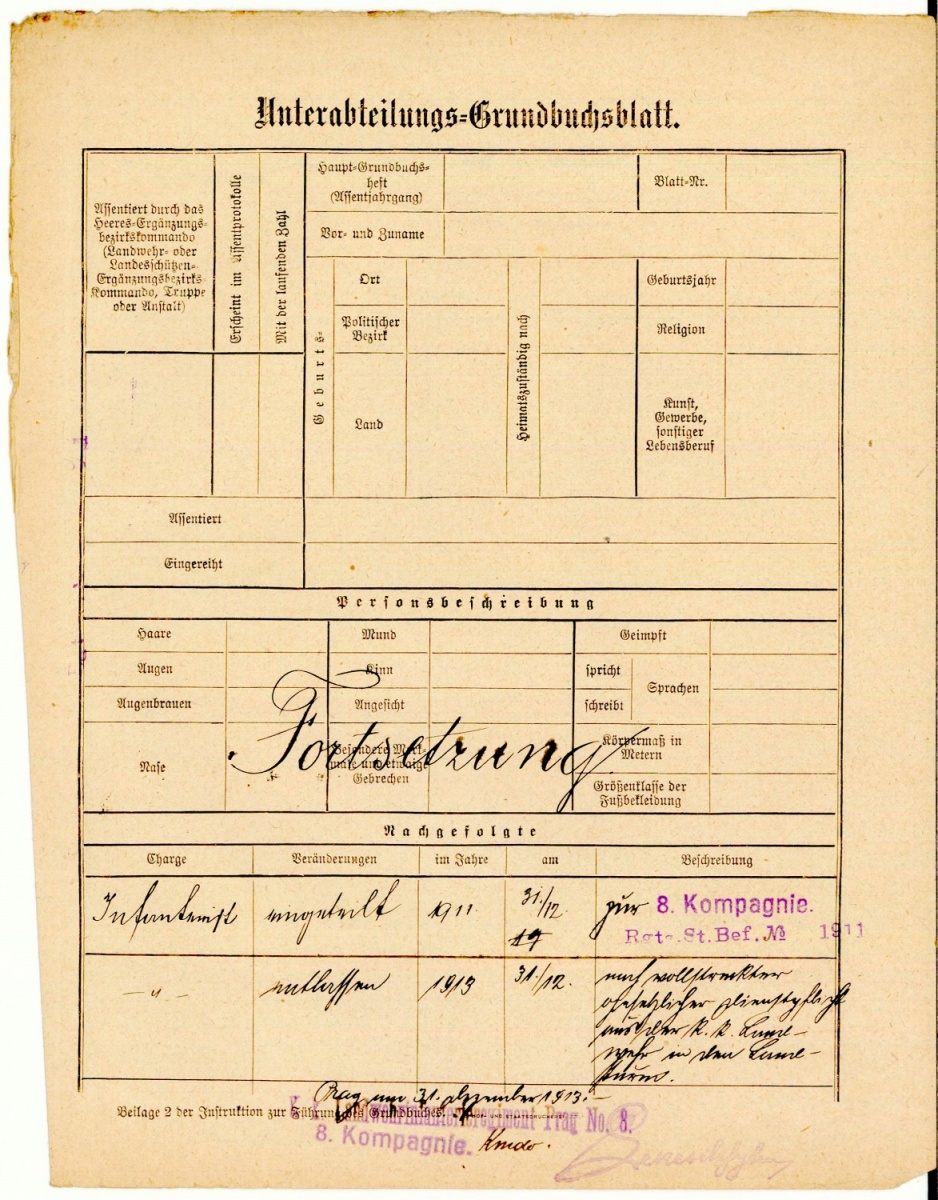 Unterabteilungs-Grundbuchsblatt.
Assentiert durch das
Heeres-Ergänzungs-
bezirkskommando
(Landwehr- oder
Landesschützen-
Ergänzungsbezirks-
Kommando, Truppe
oder Anstalt)
Erscheint im Assentprotokolle
Mit der laufenden Zahl
Haupt-Grundbuchs-
heft
(Assentjahrgang)
Blatt-Nr.
Vor- und Zuname
Geburts-
Ort
Politischer
Bezirk
Land
Heimatszuständig nach
Geburtsjahr
Religion
Kunst,
Gewerbe,
sonstiger
Lebensberuf
Assentiert
Eingereiht
Personsbeschreibung
Haare Mund Geimpft
Augen Kinn spricht Sprachen
Augenbrauen Angesicht schreibt
Nase
Besondere Merk-
male und etwaige
Gebrechen
Körpermaß in
Metern
Größenklasse der
Fußbekleidung
Fortsetzung
Nachgefolgte
Charge Veränderungen im Jahre am Beschreibung
Infanterist eingeteilt 1911 31./12. zur 8. Kompagnie.
Rgts.St.Bef. № 1911
- " - entlassen 1913 31./12. nach vollstreckter
gesetzlicher Dienstpflicht
aus der k. k. Land-
wehr in den Land-
sturm.
Prag am 31. Dezember 1913.
Beilage 2 der Instruktion zur Führung des Grundbuches.
k. k. Landwehrinfanterieregiment Prag No. 8.
8. Kompagnie. Kmdo.